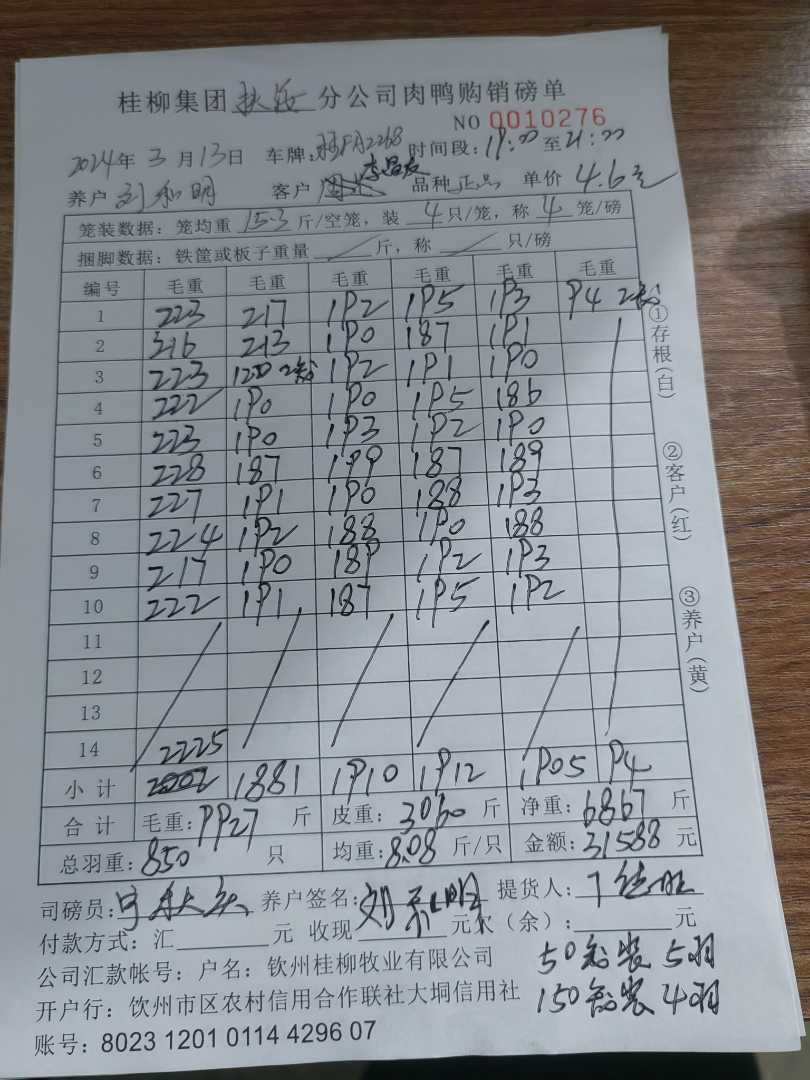 桂柳集团扶绥分公司肉鸭购销磅单
NO 0010276
2024年3月13日 车牌: 时间段:19:00至21:00
养户 刘和明 客户 李昌友 品种 正品 单价 4.6元
笼装数据: 笼均重 15.3 斤/空笼, 装 4 只/笼, 称 4 笼/磅
捆脚数据: 铁筐或板子重量 / 斤, 称 / 只/磅
编号 毛重 毛重 毛重 毛重 毛重 毛重
1 223 217 192 195 193 94 2笼
2 216 213 190 187 191
3 223 120 2笼 192 191 190
4 222 190 190 195 186
5 223 190 193 192 190
6 228 187 199 187 189
7 227 191 190 188 193
8 224 192 188 190 188
9 217 190 189 192 193
10 222 191 187 195 192
11
12
13
14
小计 2225 1881 1910 1912 1905 94
合计 毛重: 9927 斤 皮重: 3060 斤 净重: 6867 斤
总羽重: 850 只 均重: 8.08 斤/只 金额: 31588 元
司磅员: 养户签名: 刘和明 提货人:
付款方式: 汇 元 收现 元欠(余): 元
公司汇款帐号: 户名: 钦州桂柳牧业有限公司
50笼装5羽
开户行: 钦州市区农村信用合作联社大垌信用社
150笼装4羽
账号: 8023 1201 0114 4296 07
①存根(白)
②客户(红)
③养户(黄)